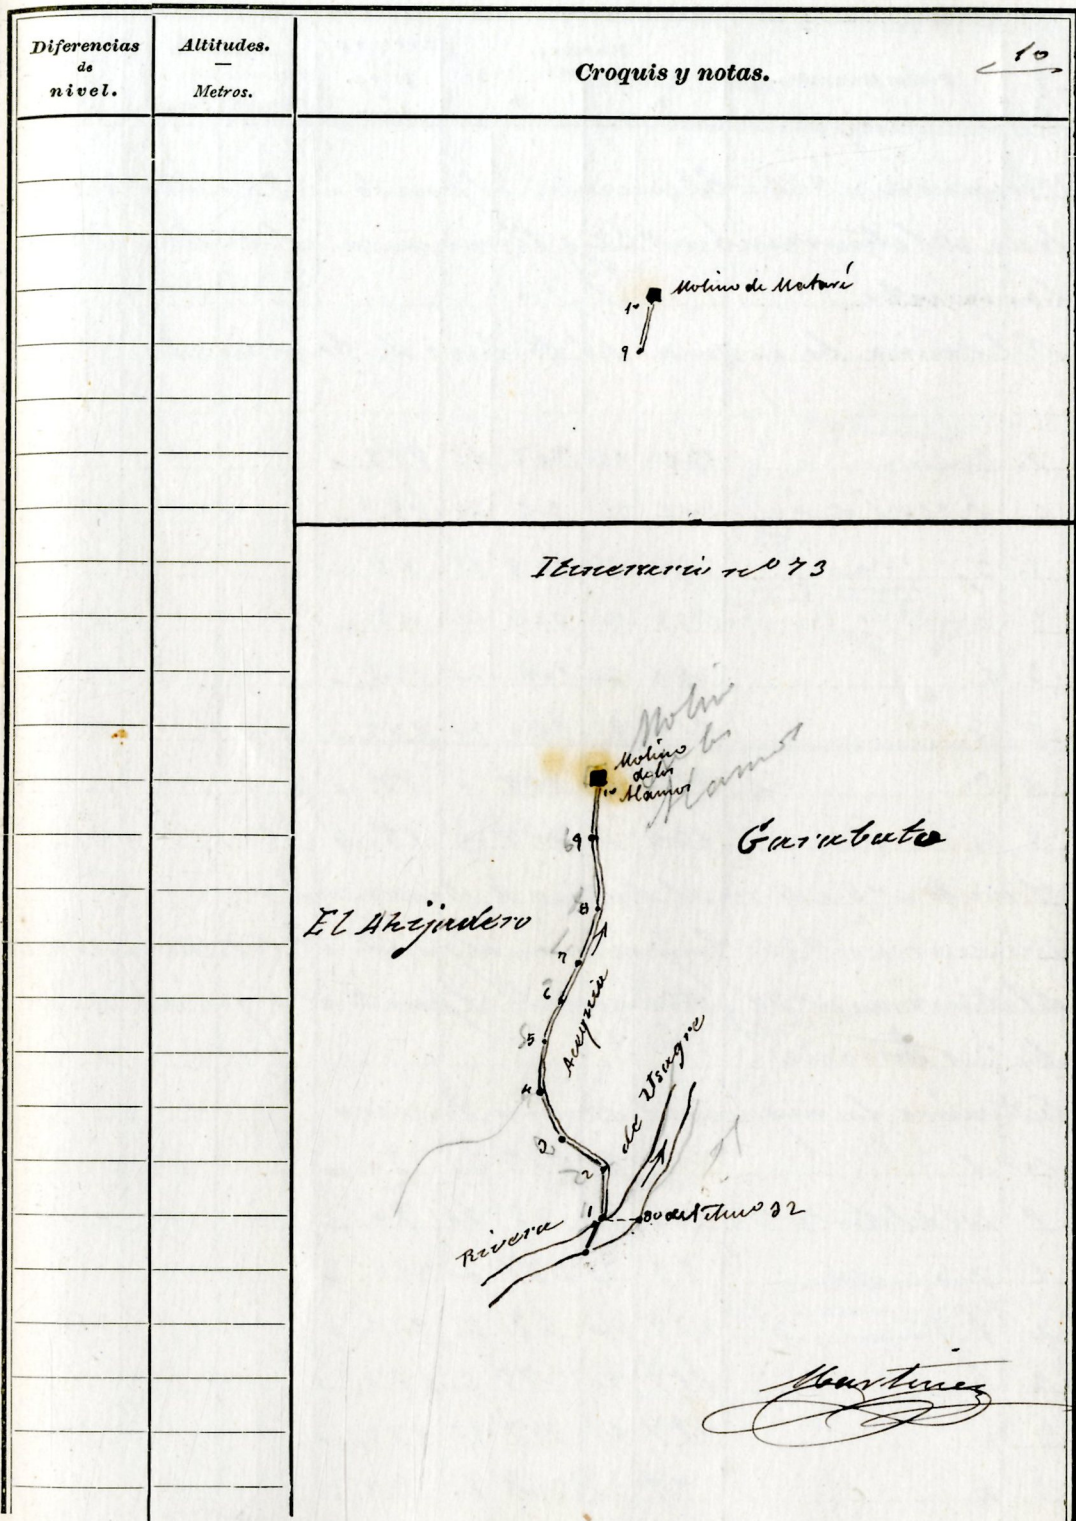 Diferencias
de
nivel.
Altitudes.
—
Metros.
Croquis y notas.
10
Molino de Mataré
10
9
Itinerario nº 73
Molino
de los
Alamos
Molino
de los
Alamos
10
9
Garabato
8
El Ahijadero
7
6
5
Acequia
4
de Usagre
3
2
1
Rivera
Martinez